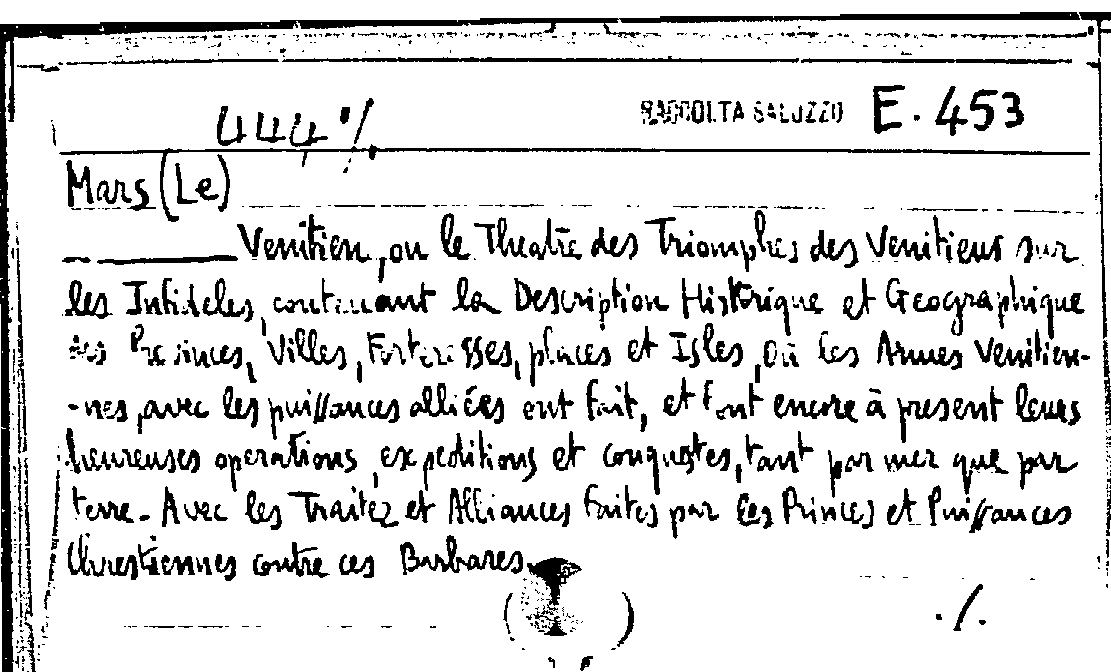 444 %
RACCOLTA SALUZZO E. 453
Mars (Le)
Venitien, ou le Theatre des Triomphes des Venitiens sur
les Infideles, contenant la Description Historique et Geographique
des Provinces, Villes, Forteresses, places et Isles, où les Armes Venitien-
-nes, avec les puissances alliées ont fait, et font encore à present leurs
heureuses operations, expeditions et conquestes, tant par mer que par
terre. Avec les Traitez et Alliances faites par les Princes et Puissances
Chrestiennes contre ces Barbares.
./.